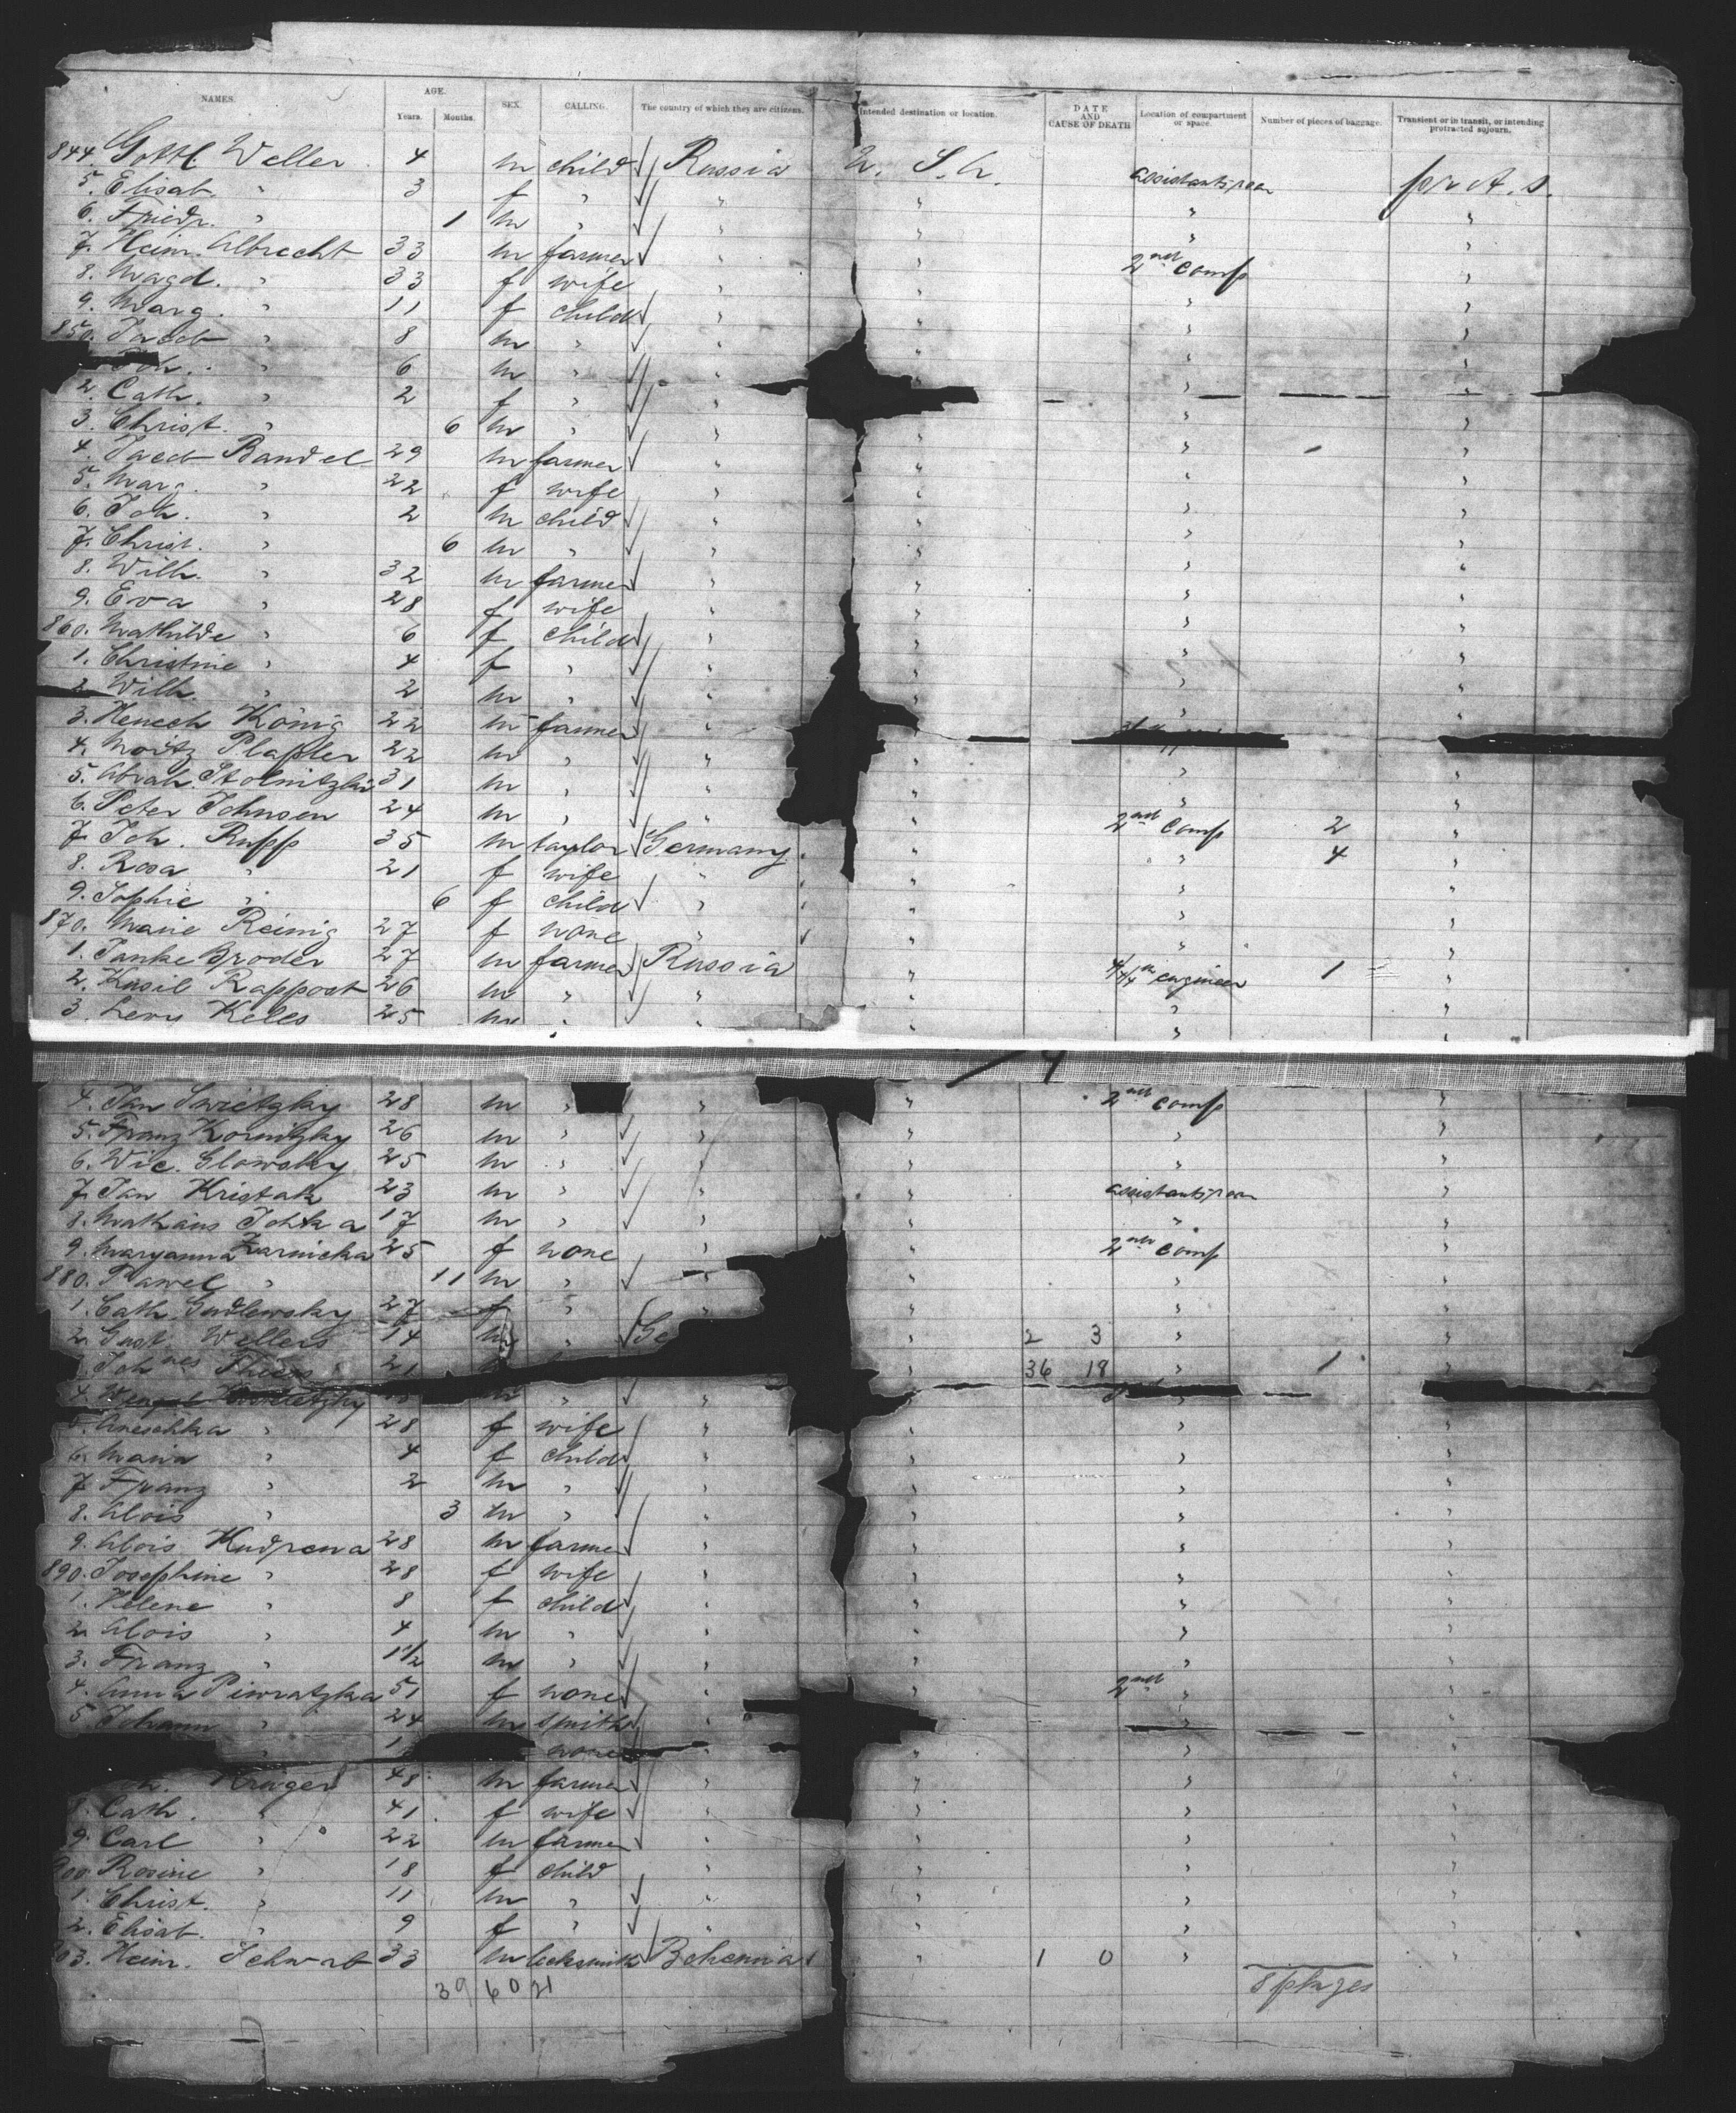 NAMES. AGE. Years. Months. SEX. CALLING. The country of which they are citizens. Intended destination or location. DATE AND CAUSE OF DEATH Location of compartment or space. Number of pieces of baggage. Transient or in transit, or intending protracted sojourn.
844. Gottl. Weller 4 m child √ Russia U. S. A. pr A. S.
5. Elisab. " 3 f " √ " " "
6. Friedr. " 1 m " √ " " " "
7. Heinr. Albrecht 33 m farmer √ " " 2nd Comp "
8. Magd. " 33 f wife " " " "
9. Marg. " 11 f child √ " " " "
850. Jacob " 8 m " √ " " " "
Joh. " 6 m " √ " " " "
2. Cath. " 2 f " √ " " "
3. Christ. " 6 m " √ " " " "
4. Jacob Bandel 29 m farmer √ " " " "
5. Marg. " 22 f wife " " " "
6. Joh. " 2 m child √ " " " "
7. Christ. " 6 m " √ " " " "
8. Wilh. " 32 m farmer √ " " " "
9. Eva " 28 f wife " " " "
860. Mathilde " 6 f child √ " " " "
1. Christine " 4 f " √ " " " "
2. Wilh. " 2 m " √ " " " "
3. König 22 m farmer √ " "
4. Moritz 22 m " √ " " "
5. Abrah. 31 m " √ " " " "
6. Peter Johnsen 24 m " √ " " 2nd Comp 2 "
7. Joh. Rupp 35 m taylor √ Germany " " 4 "
8. Rosa " 21 f wife " " " "
9. Sophie " 6 f child √ " " " "
870. Marie Reinig 27 f none " " " "
1. Janke Broder 27 m farmer √ Russia " 4/4th engineer 1 "
2. Rapport 26 m " √ " " " "
3. Levy Keles 25 m " √ " " " "
4. Jan 28 m " " " 2nd Comp "
5. Franz 26 m " √ " " " "
6. Vic. Glowsky 25 m " √ " " " "
7. Jan Kristak 23 m " √ " " "
8. 17 m " √ " " " "
9. Maryanna 25 f none " " 2nd Comp "
880. Pawel " 11 m " √ " " " "
1. Cath. Gudlewsky 27 f " " " " "
2. Gust. Wellers 14 m " √ Ge " 2 3 " "
Johnes 21 " 36 18 " 1 "
4. m " √ " "
5. Aneschka " 28 f wife " " " "
6. Maria " 4 f child √ " " " "
7. Franz " 2 m " √ " " " "
8. Alois " 3 m " √ " " " "
9. Alois Kudrena 28 m farmer √ " " " "
890. Josephine " 28 f wife " " " "
1. Helene " 8 f child √ " " " "
2. Alois " 4 m " √ " " " "
3. Franz " 1 1/2 m " √ " " " "
4. Anna 51 f none √ " " 2nd " "
5. Johann " 24 m smith √ " " " "
" none " " " "
Krüger 48 m farmer √ " " " "
8. Cath. " 41 f wife √ " " " "
9. Carl " 22 m farmer √ " " " "
900. Rosine " 18 f child " " " "
1. Christ. " 11 m " √ " " " "
2. Elisab. " 9 f " √ " " " "
903. Heinr. Schwab 33 m locksmith √ Bohemia " 1 0 " "
39 60 21